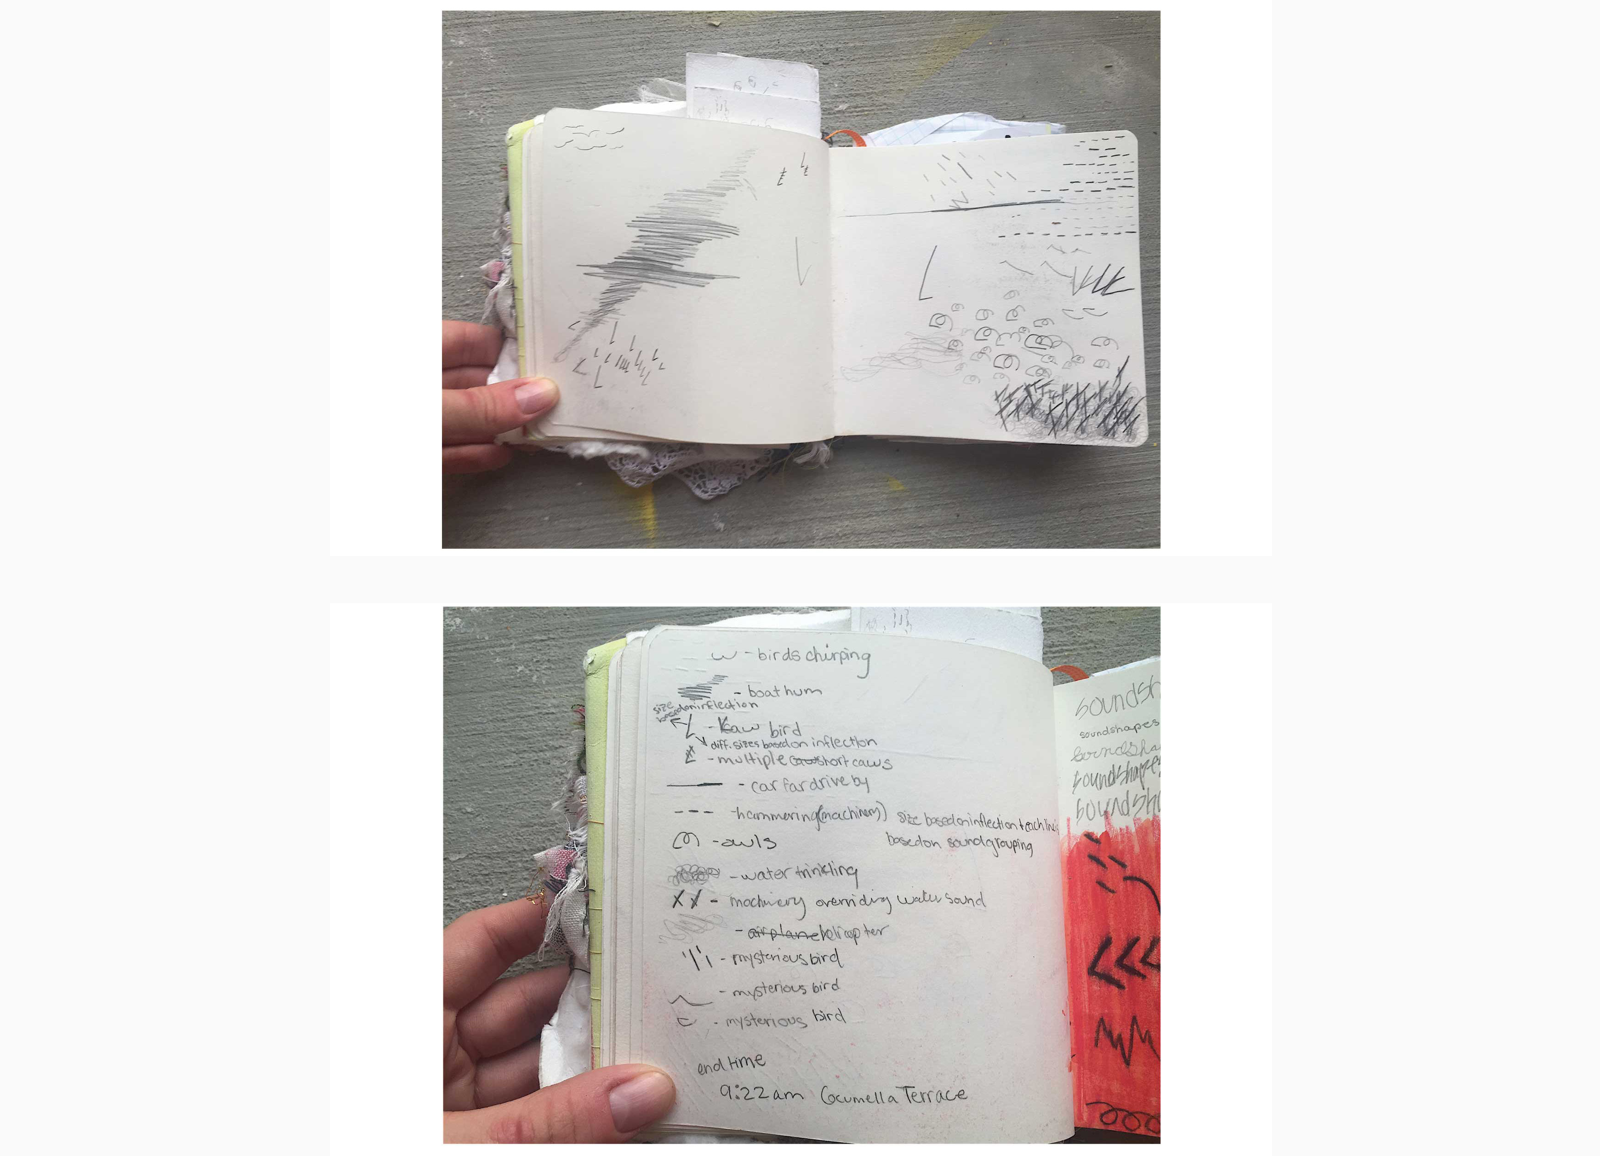 w - birds chirping
- boat hum
size based on inflection
- Kaw bird
diff. sizes based on inflection
- multiple short caws
- car far drive by
- hammering (machinery) size based on inflection + each line
based on sound grouping
- owls
- water trinkling
X X - machinery overriding water sound
- airplane helicopter
- mysterious bird
- mysterious bird
- mysterious bird
end time
9:22am Cocumella Terrace
soundsh
soundshapes
soundsha
soundshapes
soundsh